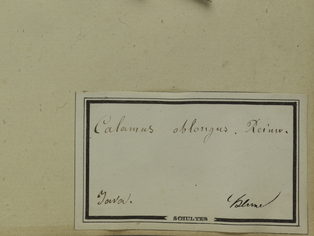 Calamus oblongus. Reinw.
Java.
Blume
SCHULTES